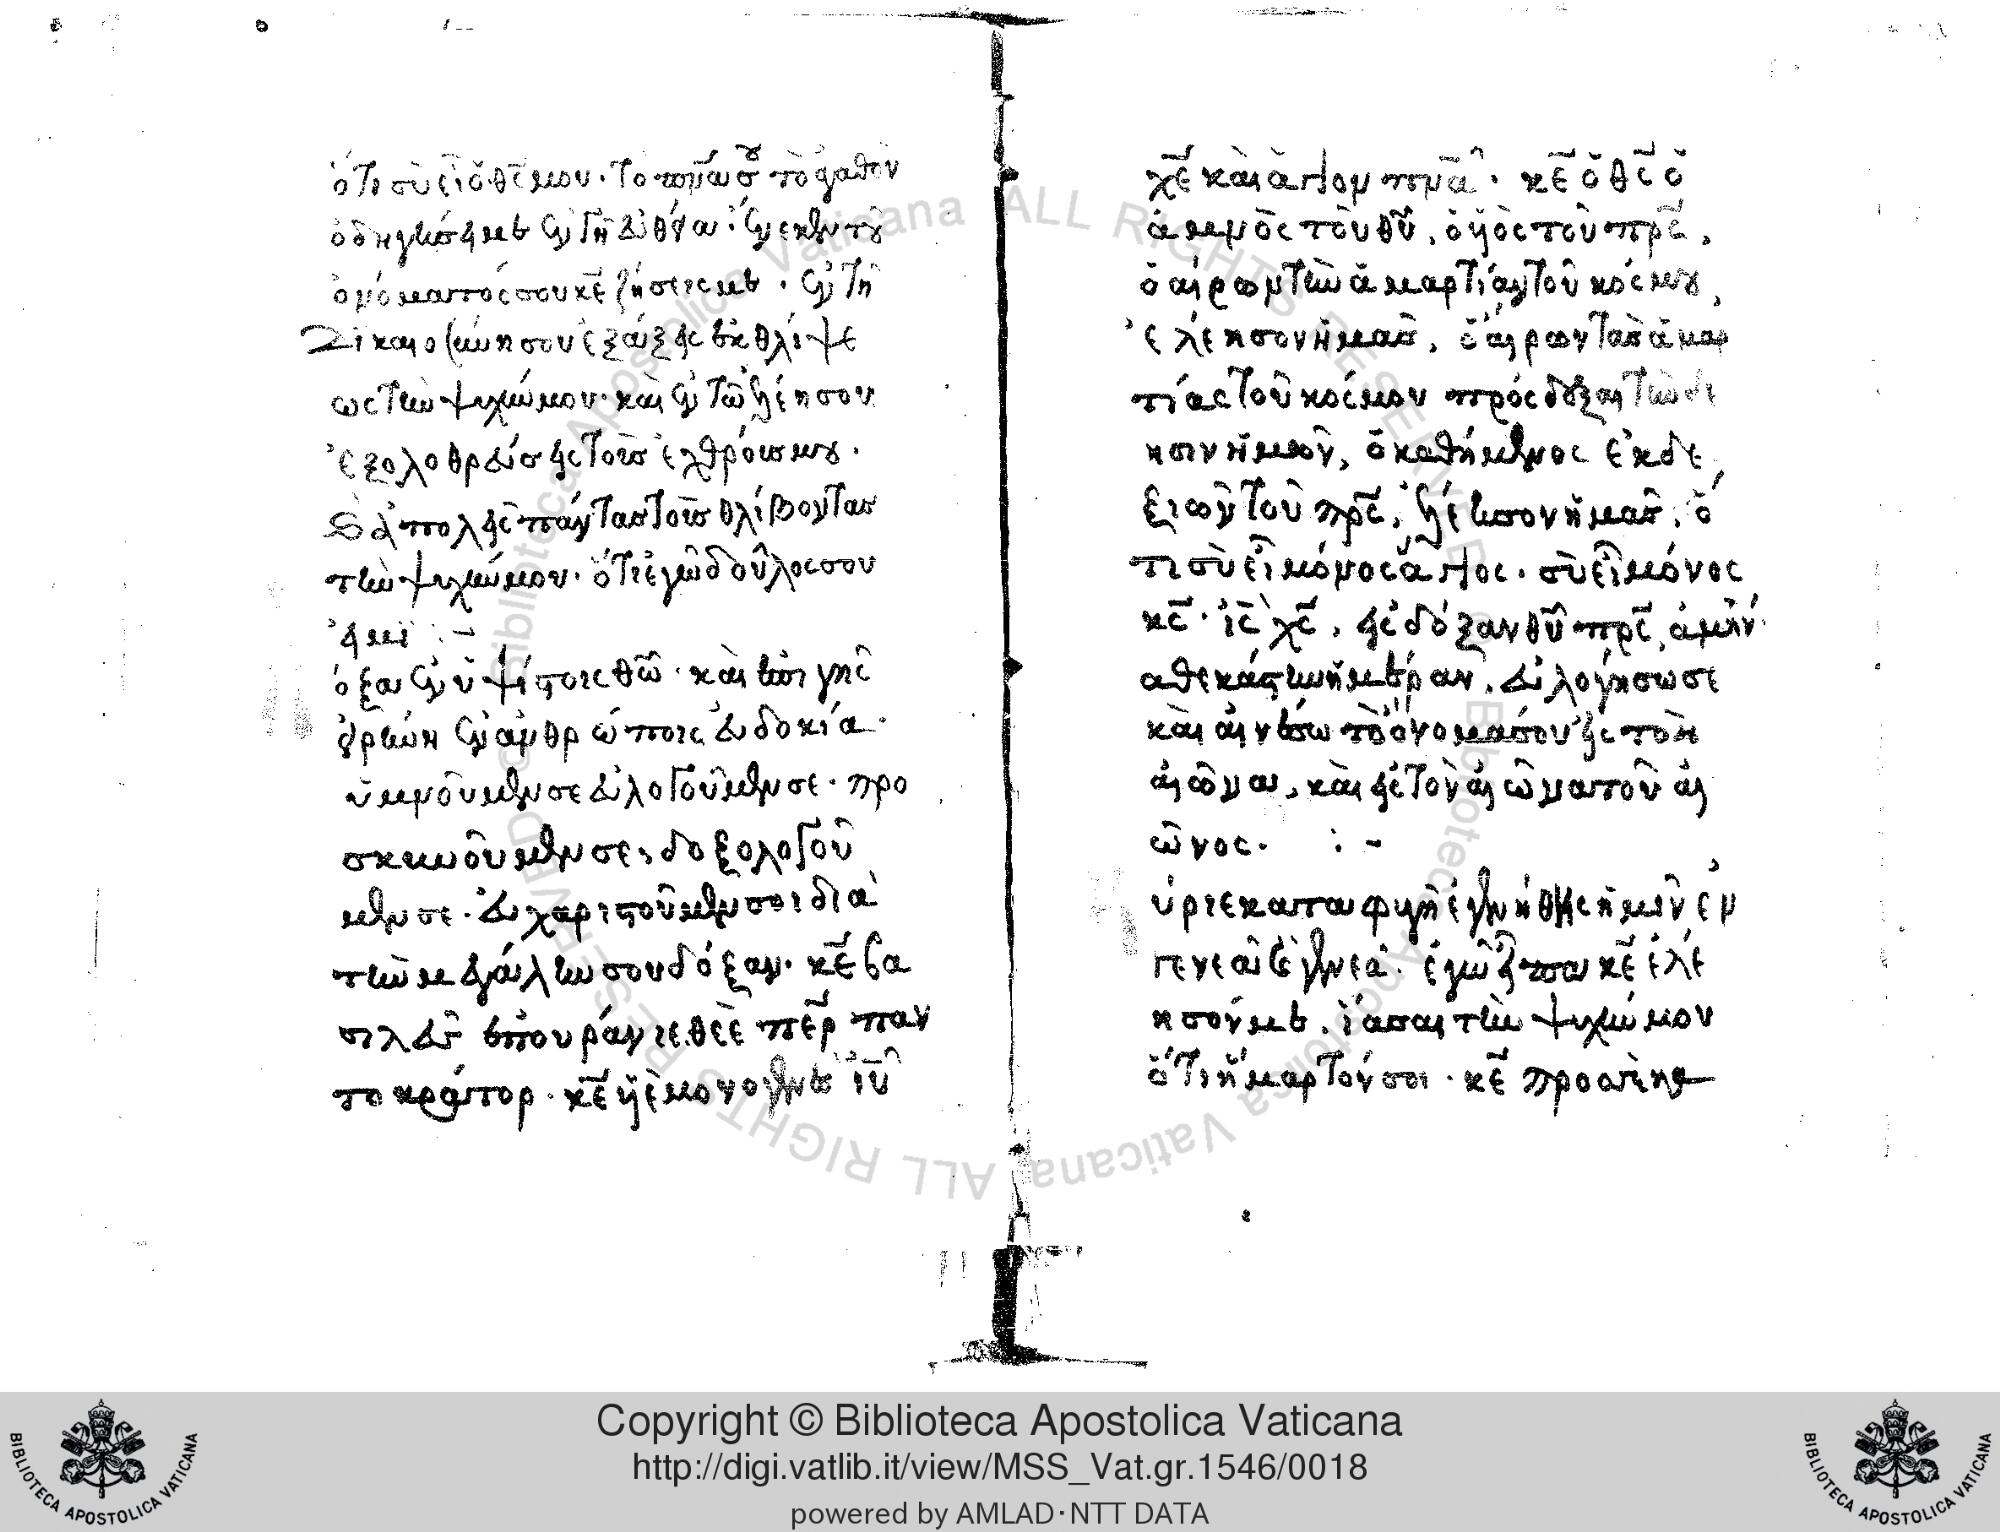 ὅτι σὺ εἶ ὁ θς μου· τὸ πνα σου τὸ ἀγαθὸν
ὁδηγήσει με ἐν γῆ εὐθεία· ἕνεκεν τοῦ
ὀνόματός σου κε ζήσεις με· ἐν τῆ
δικαιοσύνη σου ἐξάξεις ἐκ θλίψε
ως τὴν ψυχήν μου· καὶ ἐν τῶ ἐλέει σου
ἐξολοθρεύσεις τοὺς ἐχθρούς μου·
καὶ ἀπολεῖς πάντας τοὺς θλίβοντας
τὴν ψυχήν μου· ὅτι ἐγὼ δοῦλος σου
εἰμί :–
όξα ἐν ὑψίστοις θῶ· καὶ ἐπὶ γῆς
εἰρήνη ἐν ἀνθρώποις εὐδοκία·
ὑμνοῦμέν σε εὐλογοῦμέν σε· προ
σκυνοῦμέν σε, δοξολογοῦ
μέν σε· εὐχαριστοῦμέν σοι διὰ
τὴν μεγάλην σου δόξαν· κε βα
σιλεῦ ἐπουράνιε θεὲ περ παν
τοκράτορ· κε υἱὲ μονογενὲς ιυ
χε καὶ ἅγιον πνα· κε ὁ θς ὁ
ἀμνὸς τοῦ θυ, ὁ υἱὸς τοῦ πρς,
ὁ αἴρων τὴν ἁμαρτίαν τοῦ κόσμου,
ἐλέησον ἡμᾶς, ὁ αἴρων τὰς ἁμαρ
τίας τοῦ κόσμου πρόσδεξαι τὴν δέ
ησιν ἡμῶν, ὁ καθήμενος ἐκ δε
ξιῶν τοῦ πρς, ἐλέησον ἡμᾶς, ὅ
τι σὺ εἶ μόνος ἅγιος· σὺ εἶ μόνος
κς· ις χς, εἰς δόξαν θυ πρς, ἀμήν·
αθεκάστην ἡμέραν, εὐλογήσω σε
καὶ αἰνέσω τὸ ὄνομά σου εἰς τὸν
αἰῶνα, καὶ εἰς τὸν αἰῶνα τοῦ αἰ
ῶνος· :–
ύριε καταφυγὴ ἐγενήθης ἡμῖν ἐν
γενεᾶ καὶ γενεᾶ· ἐγὼ εἶπα κε ἐλέ
ησόν με, ἴασαι τὴν ψυχήν μου
ὅτι ἥμαρτόν σοι· κε πρὸς σὲ
Copyright © Biblioteca Apostolica Vaticana
http://digi.vatlib.it/view/MSS_Vat.gr.1546/0018
powered by AMLAD·NTT DATA
BIBLIOTECA APOSTOLICA VATICANA
BIBLIOTECA APOSTOLICA VATICANA
© Biblioteca Apostolica Vaticana ALL RIGHTS RESERVED © Biblioteca Apostolica Vaticana ALL RIGHTS RESERVED